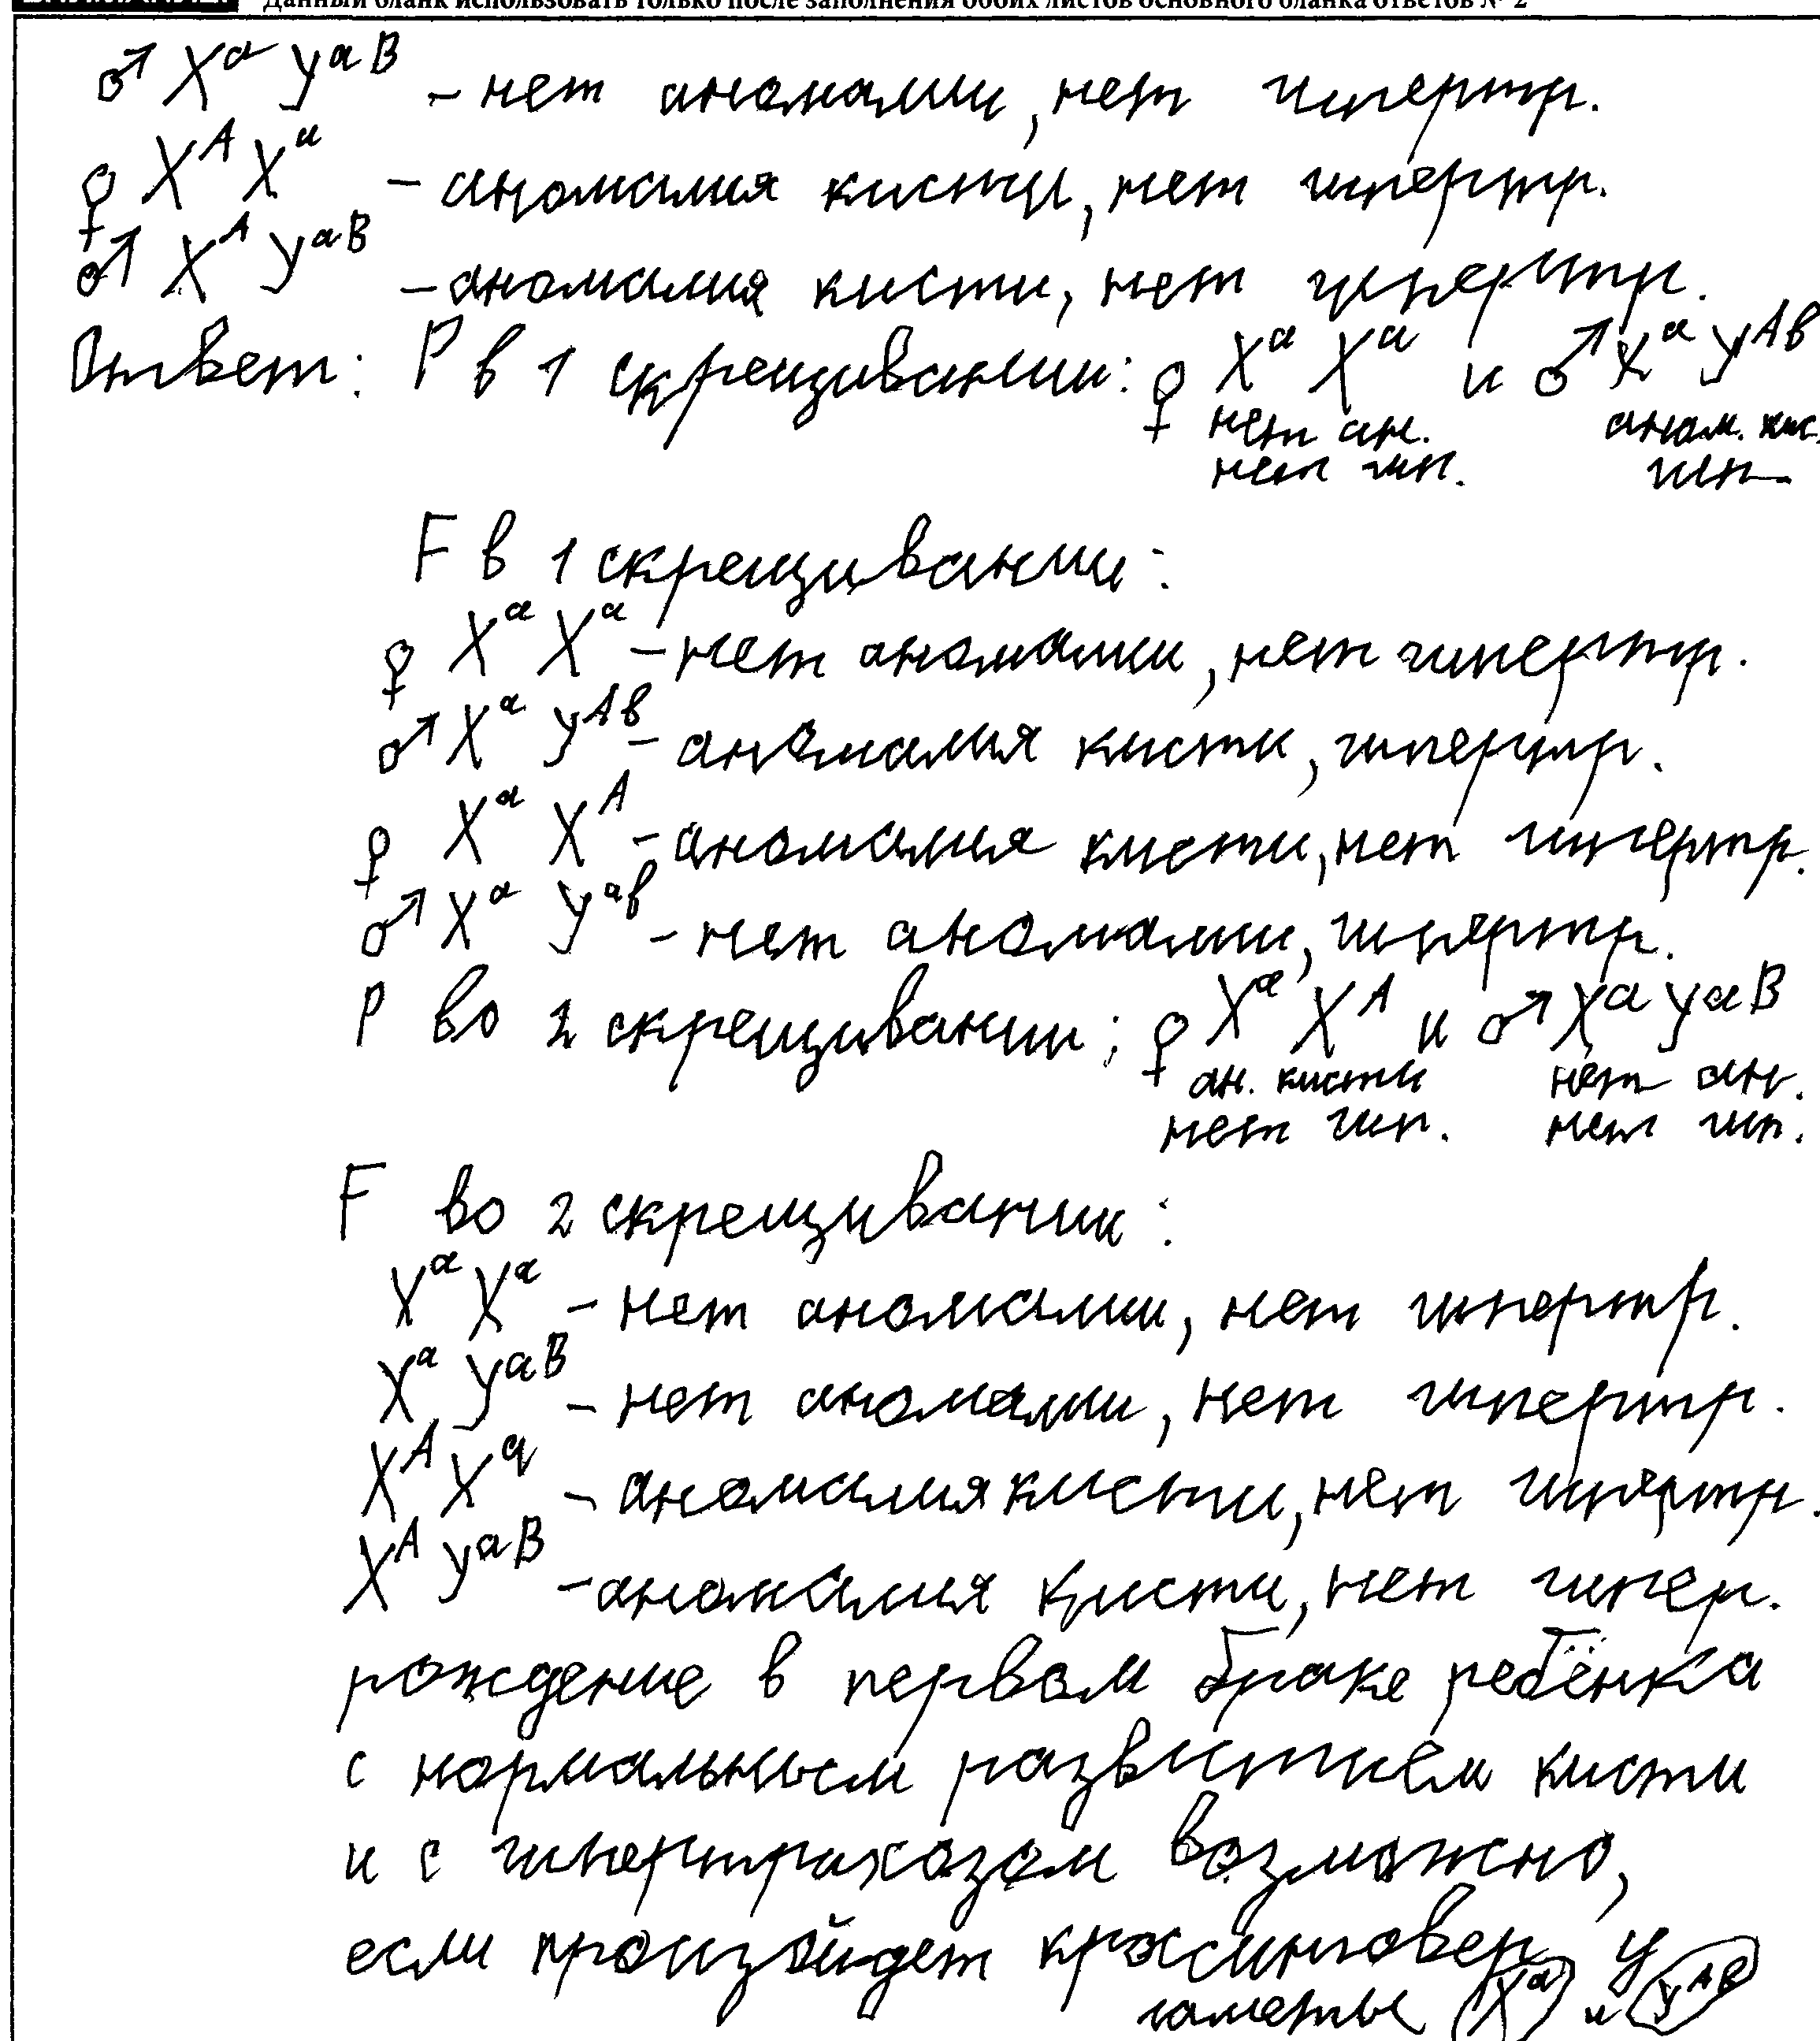 Данный бланк использовать только после заполнения обоих листов основного бланка ответов № 2
♂ Xᵃ Yᵃᴮ – нет аномалии, нет гипертр.
♀ Xᴬ Xᵃ – аномалия кисти, нет гипертр.
♂ Xᴬ Yᵃᴮ – аномалия кисти, нет гипертр.
Ответ: P в 1 скрещивании: ♀ Xᵃ Xᵃ и ♂ Xᵃ Yᴬᵇ
нет ан. аном. кис.
нет гип. гип.
F в 1 скрещивании:
♀ Xᵃ Xᵃ – нет аномалии, нет гипертр.
♂ Xᵃ Yᴬᵇ – аномалия кисти, гипертр.
♀ Xᵃ Xᴬ – аномалия кисти, нет гипертр.
♂ Xᵃ Yᵃᵇ – нет аномалии, гипертр.
P во 2 скрещивании: ♀ Xᵃ Xᴬ и ♂ Xᵃ Yᵃᴮ
ан. кисти нет ан.
нет гип. нет гип.
F во 2 скрещивании:
Xᵃ Xᵃ – нет аномалии, нет гипертр.
Xᵃ Yᵃᴮ – нет аномалии, нет гипертр.
Xᴬ Xᵃ – аномалия кисти, нет гипертр.
Xᴬ Yᵃᴮ – аномалия кисти, нет гипер.
рождение в первом браке ребёнка
с нормальным развитием кисти
и с гипертрихозом возможно,
если произойдет кроссинговер у
гаметы Xᵃ и Yᴬᵇ